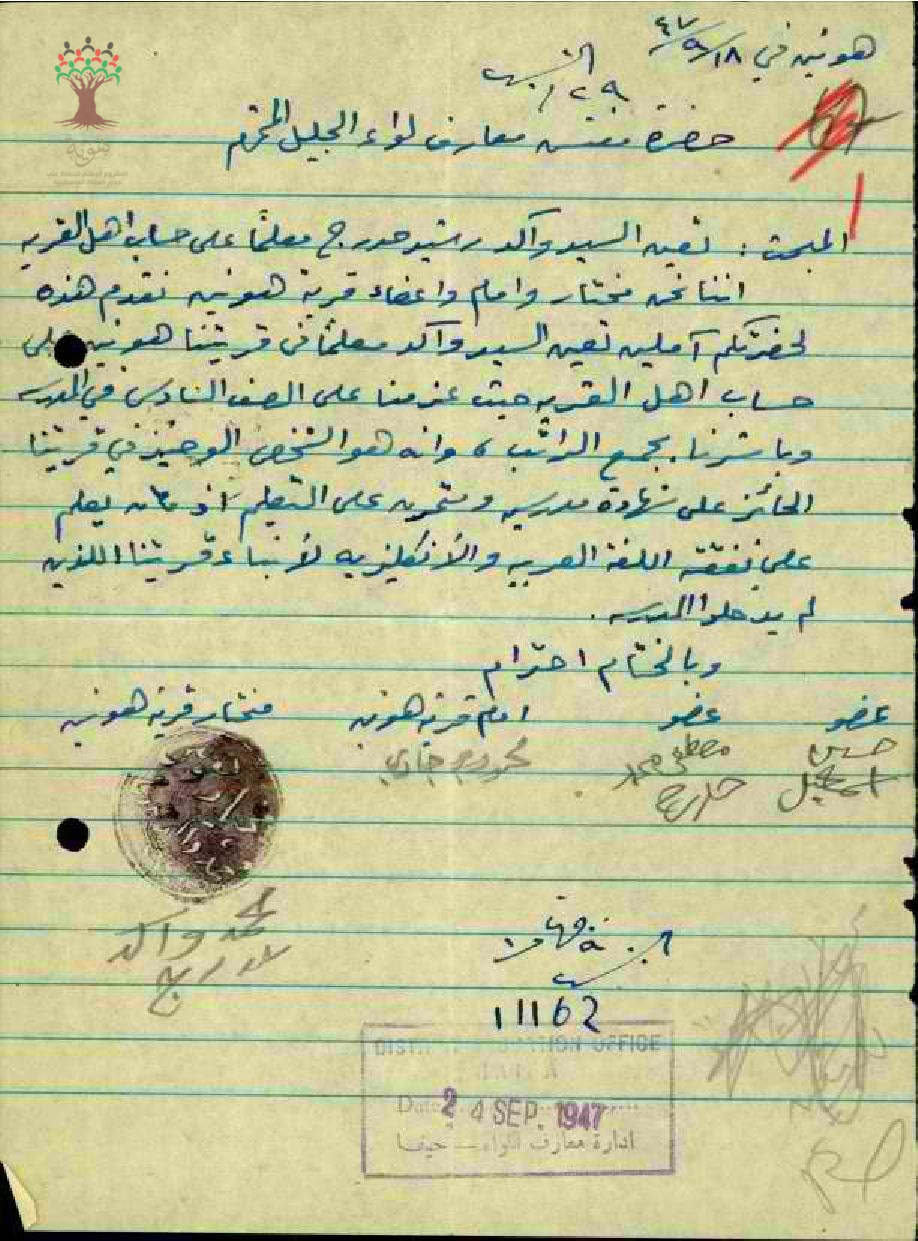 هونين في ١٨/٩/٤٧
حضرة مفتش معارف لواء الجليل المحترم
المبحث : تعين السيد واكد رشيد حدرج معلماً على حساب اهل القريه
اننا نحن مختار وامام واعضاء قرية هونين نقدم هذه
لحضرتكم آملين تعين السيد واكد معلماً في قريتنا هونين على
حساب اهل القريه حيث عزمنا على الصف السادس في المدرسه
وباشرنا بجمع الراتب ، وانه هو الشخص الوحيد في قريتنا
الحائز على شهادة مدرسيه ومتمرن على التعليم اذ كان يعلم
على نفقته اللغة العربيه والأنكليزيه لأبناء قريتنا اللذين
لم يدخلوا المدرسه .
وبالختام احترام
عضو عضو امام قرية هونين مختار قرية هونين
حسين اسماعيل
مصطفى محمد حدرج
محمد واكد حدرج
11162
DISTRICT EDUCATION OFFICE
HAIFA
Date 24 SEP. 1947
ادارة معارف اللواء — حيفا